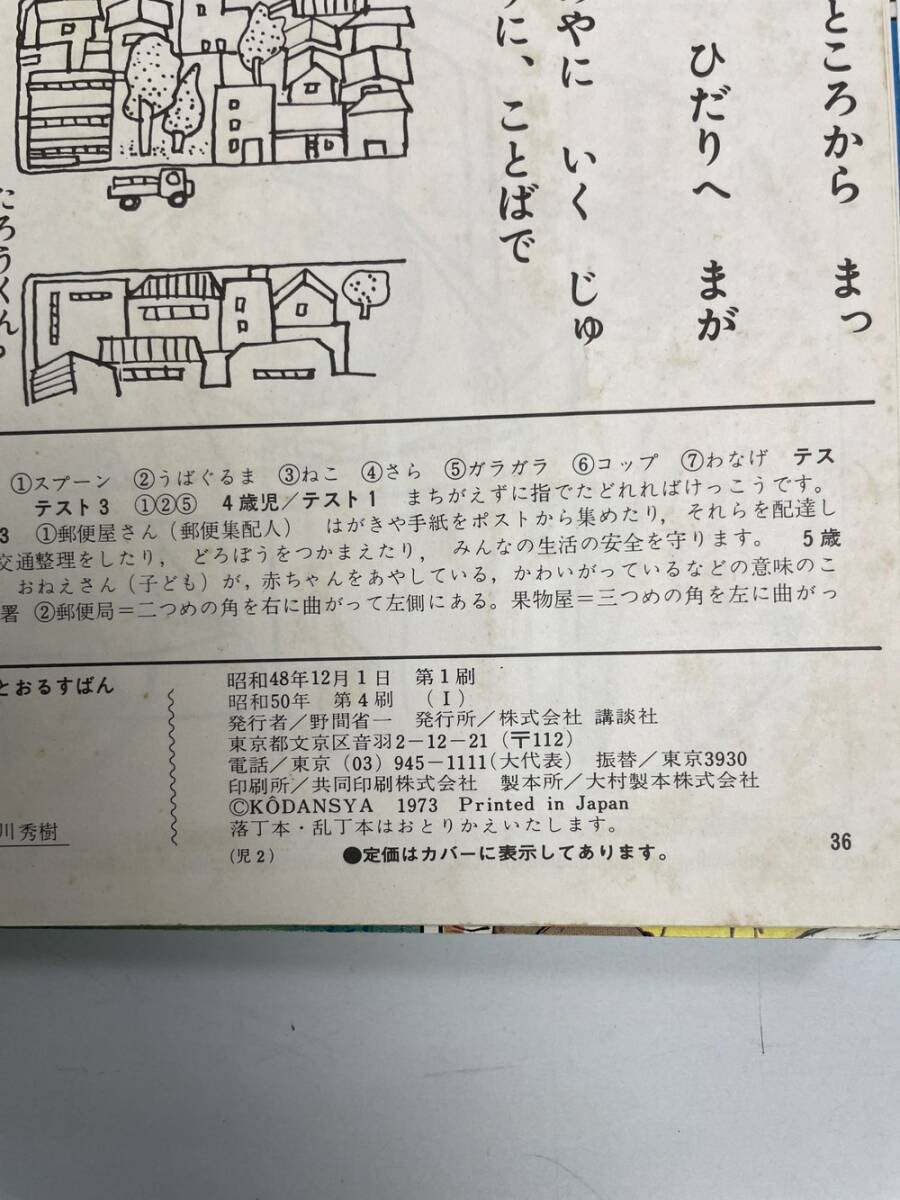 ところから まっ
ひだりへ まが
やに いく じゅ
に、ことばで
たろうくん
①スプーン ②うばぐるま ③ねこ ④さら ⑤ガラガラ ⑥コップ ⑦わなげ テス
テスト3 ①②⑤ 4歳児／テスト1 まちがえずに指でたどれればけっこうです。
3 ①郵便屋さん（郵便集配人） はがきや手紙をポストから集めたり，それらを配達し
交通整理をしたり，どろぼうをつかまえたり，みんなの生活の安全を守ります。 5歳
おねえさん（子ども）が，赤ちゃんをあやしている，かわいがっているなどの意味のこ
署 ②郵便局＝二つめの角を右に曲がって左側にある。果物屋＝三つめの角を左に曲がっ
とおるすばん
川秀樹
昭和48年12月1日 第1刷
昭和50年 第4刷 （I）
発行者／野間省一 発行所／株式会社 講談社
東京都文京区音羽2-12-21（〒112）
電話／東京（03）945-1111（大代表） 振替／東京3930
印刷所／共同印刷株式会社 製本所／大村製本株式会社
©KÔDANSYA 1973 Printed in Japan
落丁本・乱丁本はおとりかえいたします。
（児2） ●定価はカバーに表示してあります。
36